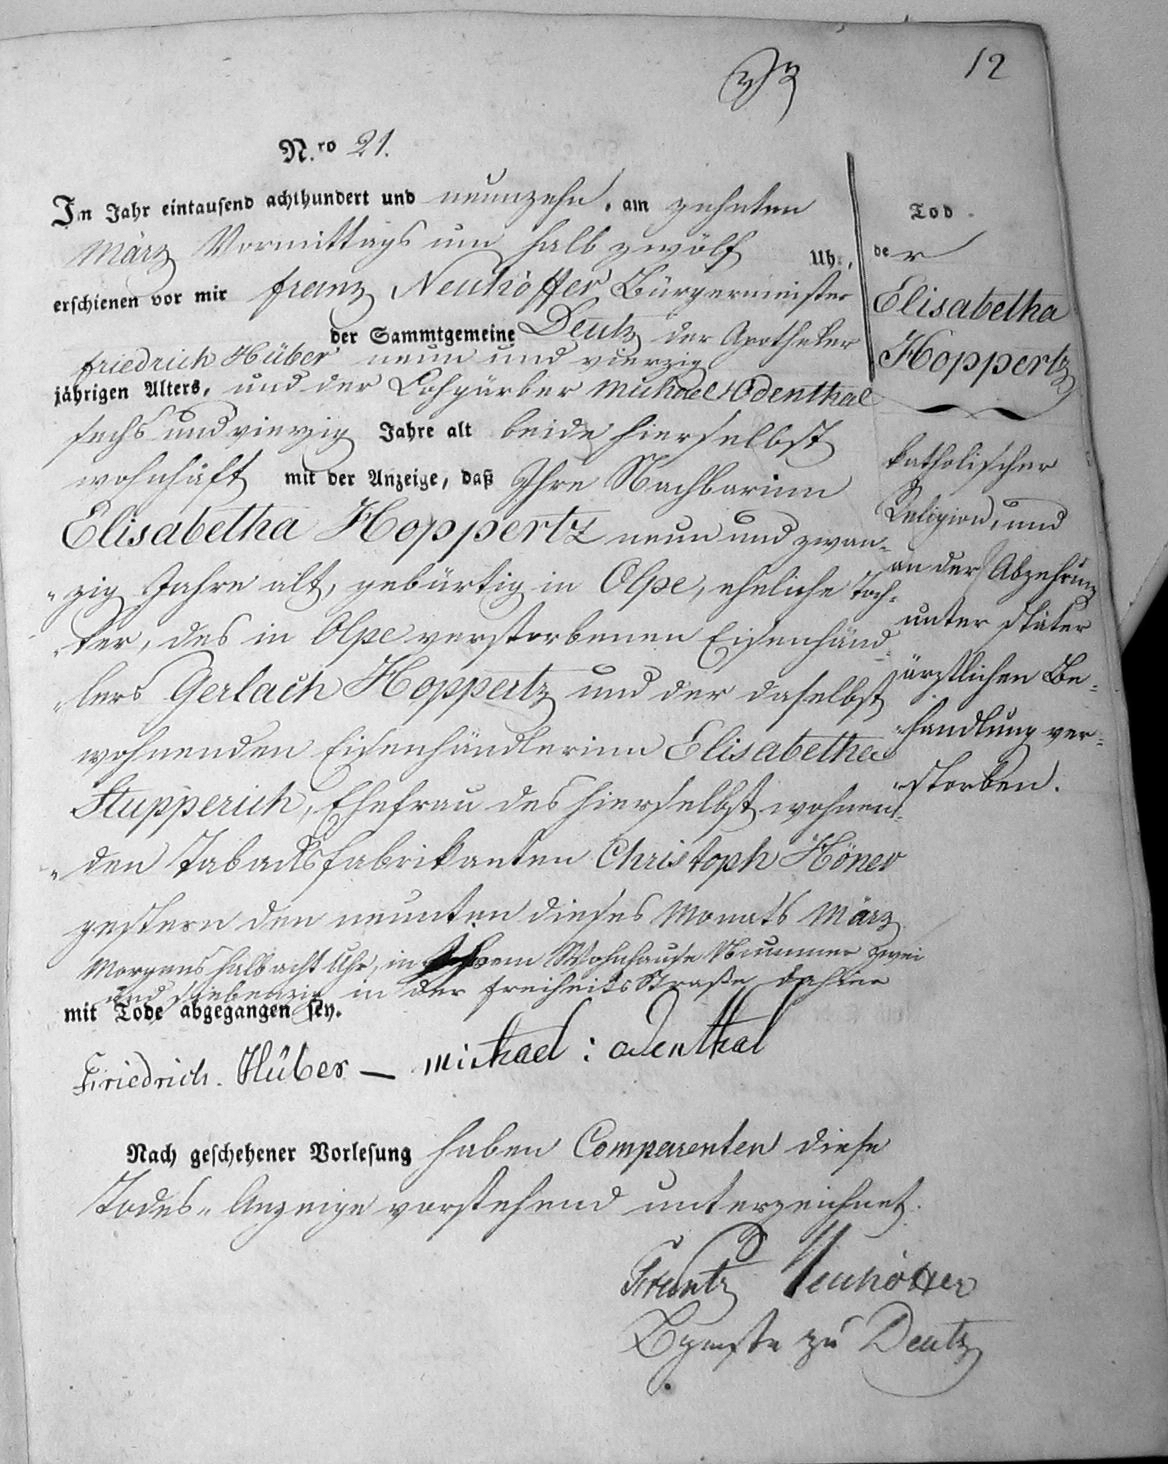 12
N.ro 21.
Im Jahr eintausend achthundert und neunzehn, am zehnten
März Vormittags um halb zwölf Uhr,
erschienen vor mir Franz Neuhöffer Bürgermeister
der Sammtgemeine Deutz der Apotheker
Friedrich Hüber neun und vierzig
jährigen Alters, und der Lohgärber Michael Odenthal
sechs und vierzig Jahre alt beide hierselbst
wohnhaft mit der Anzeige, daß Ihre Nachbarinn
Elisabetha Hoppertz neun und zwan-
"zig Jahre alt, gebürtig in Olpe, eheliche Toch-
"ter, des in Olpe verstorbenen Eisenhänd-
"lers Gerlach Hoppertz und der daselbst
wohnenden Eisenhändlerinn Elisabetha
Stupperich, Ehefrau des hierselbst wohnen-
"den Tabacksfabrikanten Christoph Höner
gestern den neunten dieses Monats März
Morgens halb acht Uhr, in Wohnhause Nummer zwei
und siebenzig in der Freiheits Straße dahier
mit Tode abgegangen sey.
Friedrich Hüber — Michael : Odenthal
Nach geschehener Vorlesung haben Comparenten diese
Todes-Anzeige vorstehend unterzeichnet.
Frantz Neuhöffer
Bgmstr zu Deutz
Tod
der
Elisabetha
Hoppertz
katholischer
Religion, und
an der Abzehrung
unter später
ärztlichen Be-
"handlung ver-
"storben.